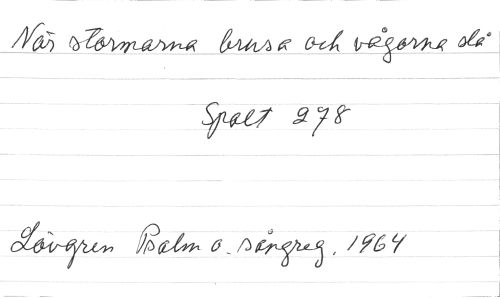 När stormarna brusa och vågorna slå
Spalt 278
Lövgren Psalm o. sångreg. 1964